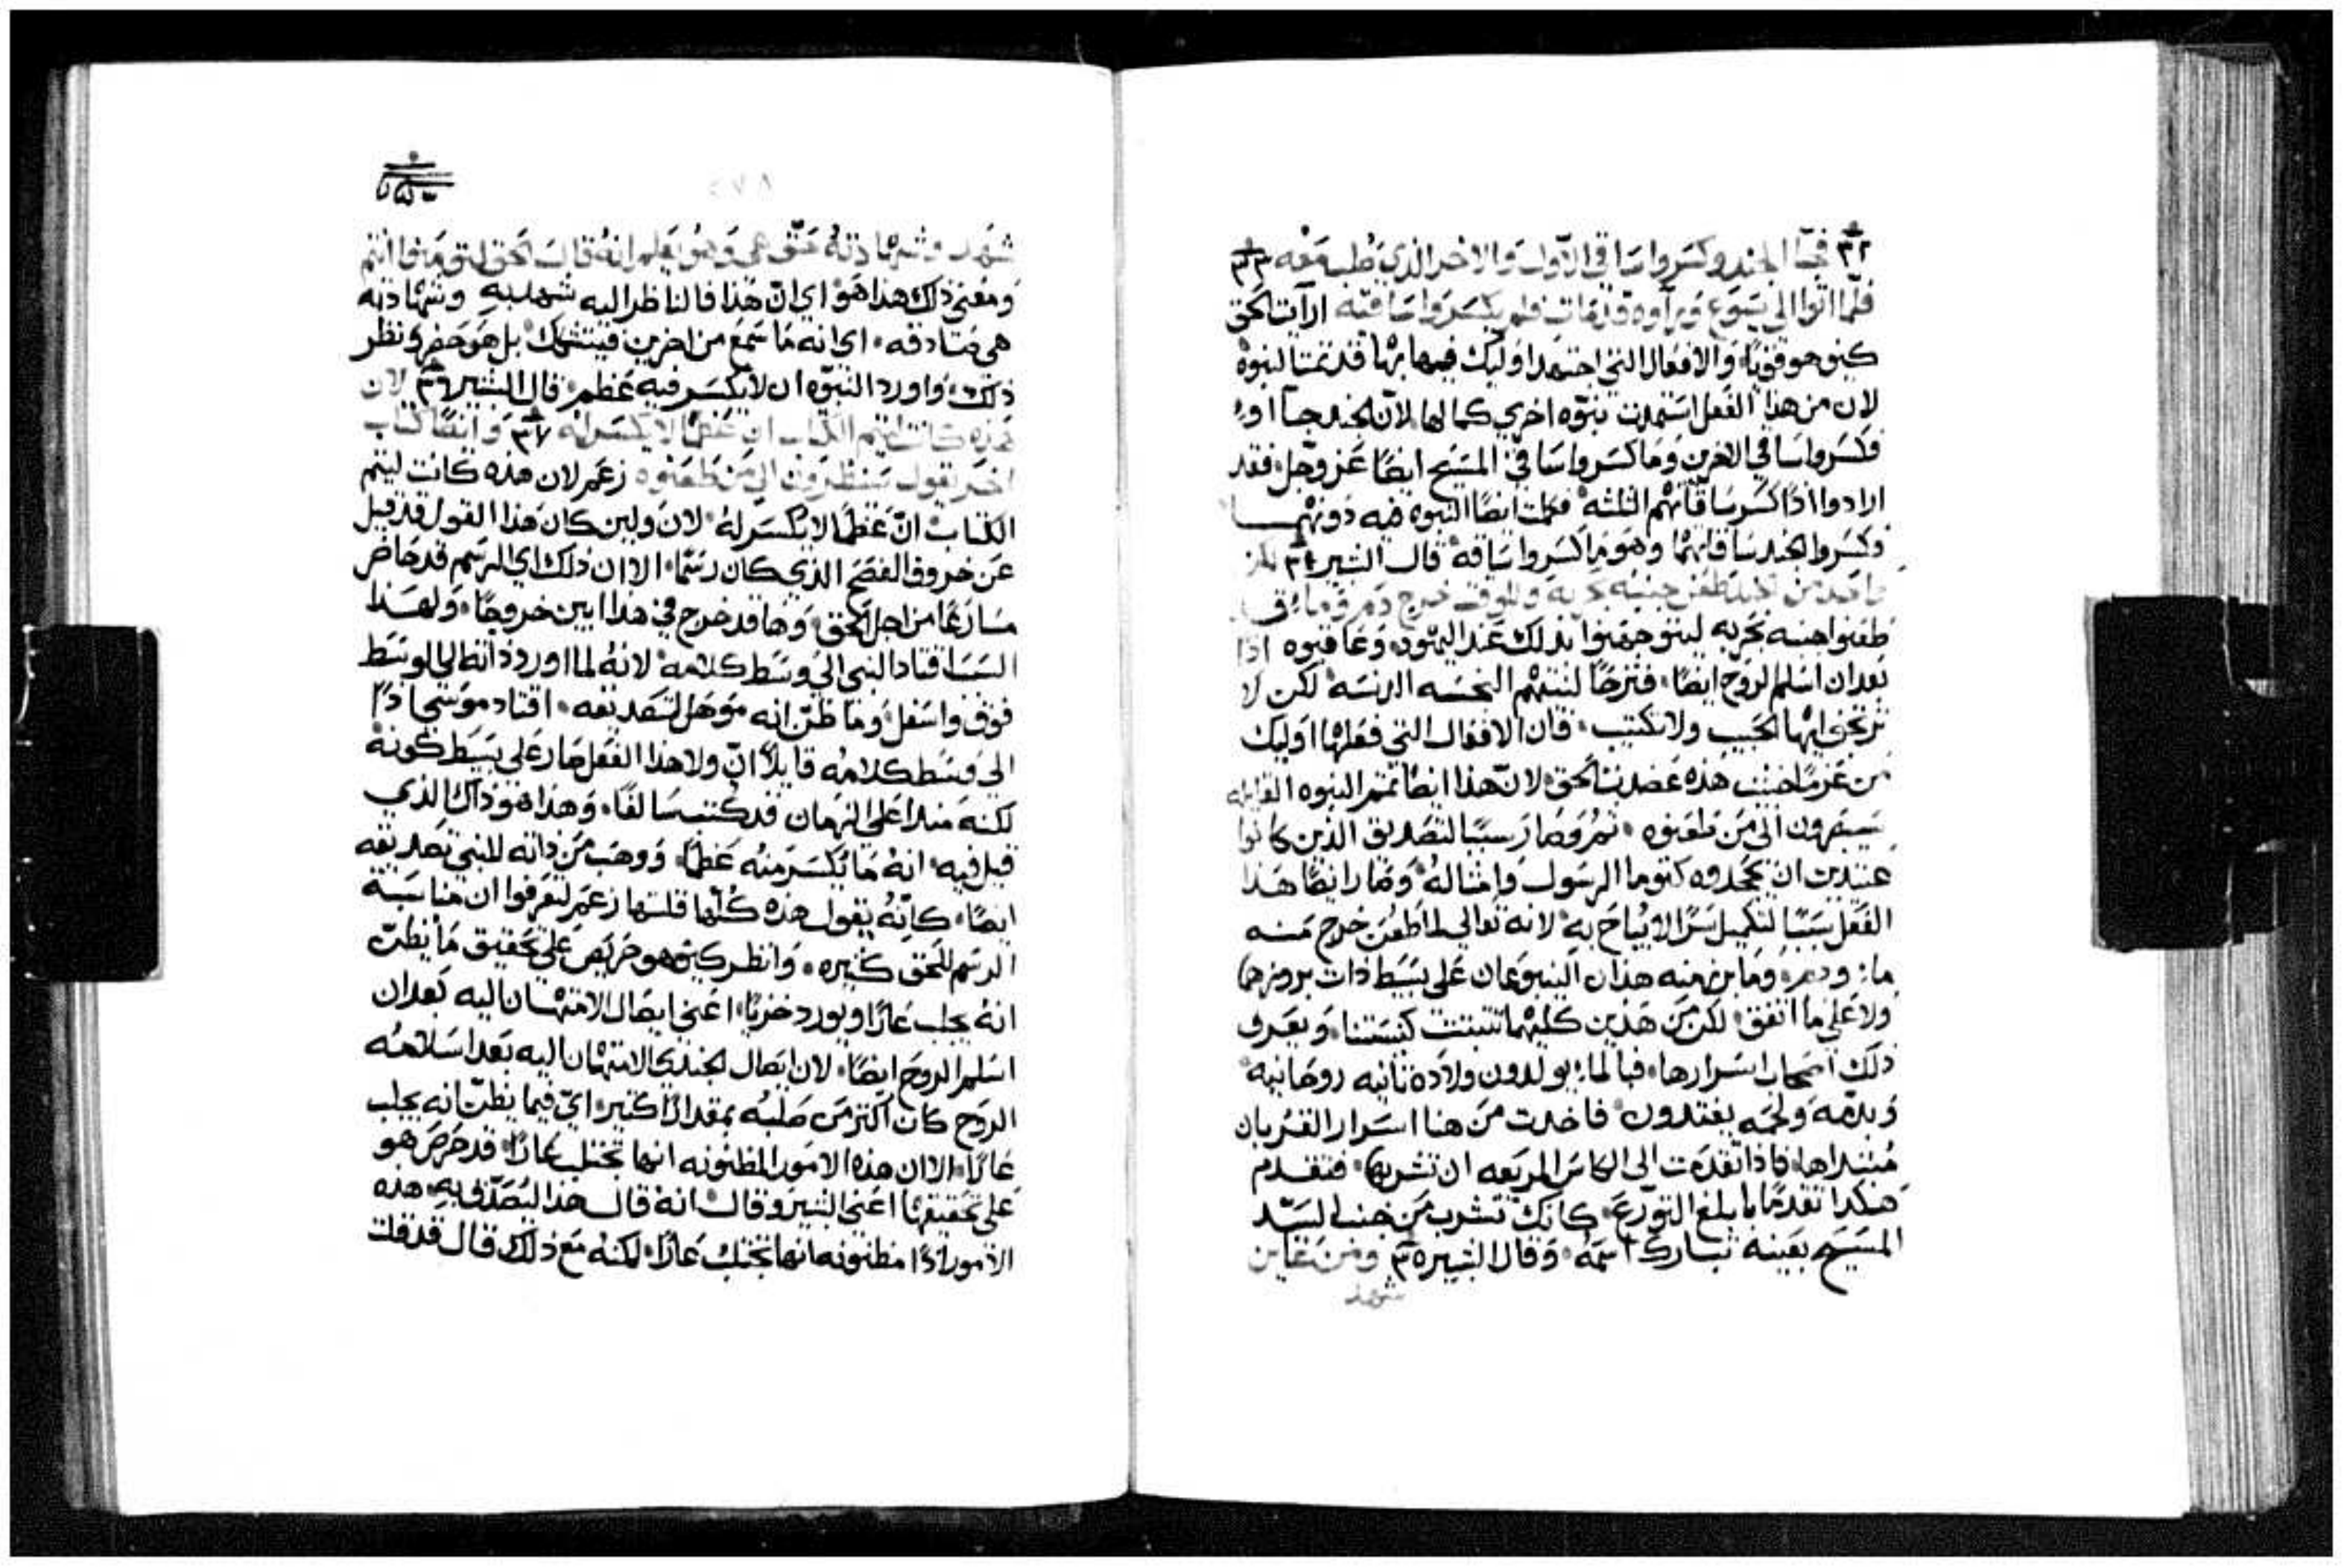 ٣٢ فجا الجند وكسروا ساقي الاول والاخر الذي صُلب معه ٣٣
فلما اتوا الي يسوع وراوه قد مات فلم يكسروا ساقيه ارايت الحق
كيف هو قويًا والافعال التي اجتهد اوليك فيها بها قد تمت النبوه
لان من هذا الفعل استمدت نبوّه اخري كمالها لانّ الجند جآاوا
فكسروا ساقي الاخرين وما كسروا ساقي المسيح ايضًا عز وجل فقد
ارادوا اذًا كسر ساقاتهم الثلثه فكملت ايضًا النبوه فيه دونهما
وكسروا الجند ساقاتهما وهو ما كسروا ساقه قال البشير ٣٤ لكن
واحد من الجند طعن جنبه بحربه وللوقت خرج دم وماء
طعنوا جنبه بحربه ليتوجهوا بذلك عند اليهود وعاقبوه اذًا
بعد ان اسلم الروح ايضًا فترحًا لنيتهم النجسه الدنسه لكن لا
ترتجف ايها الحبيب ولا تكتيب فان الافعال التي فعلها اوليك
من عزم خبيث هذه عضدت الحق لانّ هذا ايضًا تمم النبوه القايله
سيبصرون الي من طعنوه ثمُ وصار سببًا لتصديق الذين كانوا
عتيدين ان يجحدوه كتوما الرسول وامثاله وصار ايضًا هذا
الفعل سببًا لتكميل سرًا لا يُباح به لانه تعالي لما طُعن خرج منه
ماءٌ ودم وما برز منه هذان الينبوعان علي بسيط ذات بروزهما
ولا علي ما اتفق لكن من هذين كليهما تثبتت كنيستنا ويعرف
ذلك اصحاب اسرارها فبالماء يولدون ولادة ثانيه روحانيه
وبدمه ولحمه يغتدون فاخدت من هنا اسرار القربان
مبتداها فاذا تقدمت الي الكاس المريعه ان تشربها فتقدم
هكدا تقدمًا بالغ التورع كانك تشرب من جنب السيّد
المسيح بعينه تبارك اسمه وقال البشير ٣٥ ومن عاين
شهد
شهد وشهادته حق هي وهو يعلم انه قال الحق لتومنوا انتم
ومعني ذلك هذا هو اي انّ هذا فالناظر اليه شهد به وشهادته
هي صادقه اي انه ما سمع من اخرين فيتشكك بل هو حضر ونظر
ذلك واورد النبوّه ان لا يُكسر فيه عظم قال البشير ٣٦ لان
هذه كانت ليتم الكتاب ان عظمًا لا يكسر له ٣٧ وايضًا كتاب
اخر يقول سينظرون الي من طعنوه زعم لان هذه كانت ليتم
الكتاب انّ عظمًا لا يكسر له لان ولين كان هذا القول قد قيل
عن خروف الفصح الذي كان رسمًا الا ان ذلك اي الرسم قد حاض
مسارعًا من اجل الحق وها قد خرج في هذا ابين خروجًا ولهذا
السبب اقتاد النبي الي وسط كلامه لانه لما اورد ذاته الي الوسط
فوق واسفل وما ظن انه موهل لتصديقه اقتاد موسي اذًا
الي وسط كلامه قايلاً انّ ولا هذا الفعل صار علي بسيط كونه
لكنه منذ اعلي الزمان قد كُتب سالفًا وهذا هو ذاك الذي
قيل فيه انه ما يُكسر منه عظمًا ووهب من ذاته للنبي تصديقه
ايضًا كانّه يقول هذه كُلها قلتها زعم لتعرفوا ان مناسبة
الرسم للحق كثيره وانظر كيف هو حريص علي تحقيق ما يُظن
انه يجلب عارًا ويورد خزيًا اعني ايصال الامتهان اليه بعد ان
اسلم الروح ايضًا لان ايصال الجندي الامتهان اليه بعد اسلامه
الروح كان اكثر من صلبه بمقدارًا كثير اي فيما يُظن انه يجلب
عارًا الا ان هذه الامور المظنونه انها تجتلب عارًا قد حرص هو
علي تحقيقها اعني البشير وقال انه قال هذا ليُصدّق به هذه
الامور اذًا مظنونه انها تجتلب عارًا لكنه مع ذلك قال قد قلت